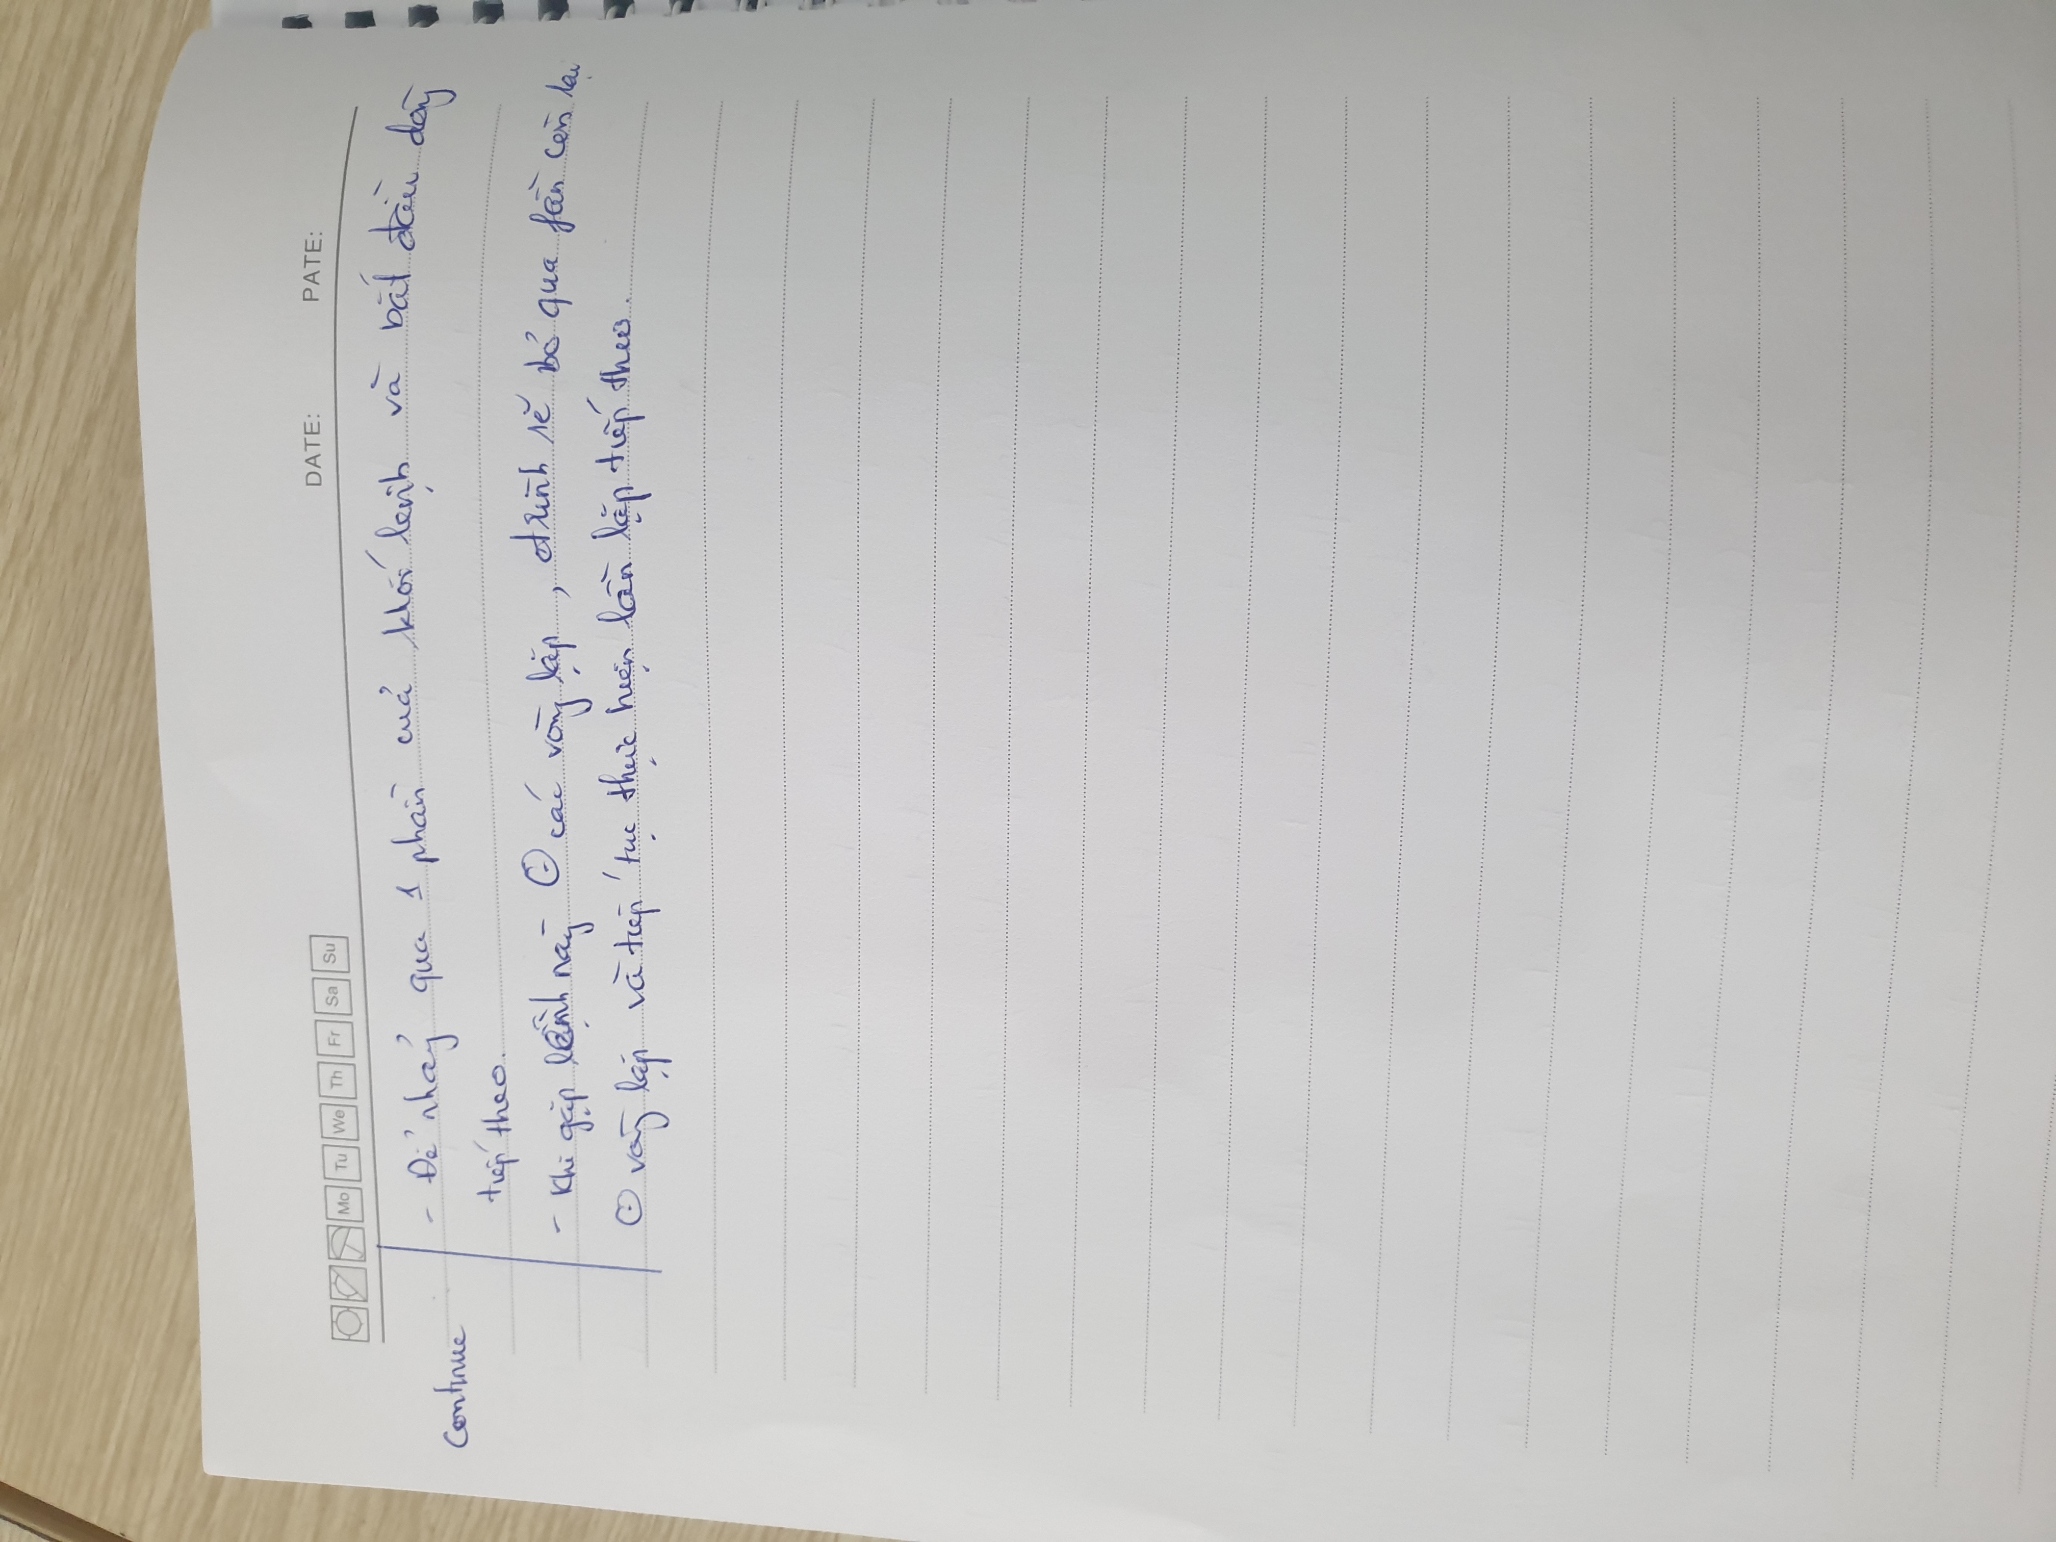 Mo Tu We Th Fr Sa Su DATE: PATE:
- Để nhảy qua 1 phần của khối lệnh và bắt đầu dòng
Continue
tiếp theo.
- Khi gặp lệnh này ⊙ các vòng lặp, ctrình sẽ bỏ qua fần còn lại
⊙ vòng lặp và tiếp tục thực hiện lần lặp tiếp theo.